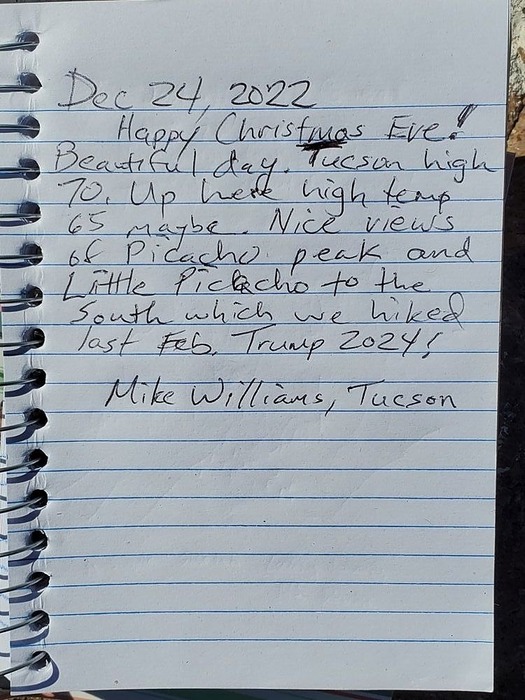 Dec 24, 2022
Happy Christmas Eve!
Beautiful day. Tucson high
70. Up here high temp
65 maybe. Nice views
of Picacho peak and
Little Picacho to the
South which we hiked
last Feb. Trump 2024!
Mike Williams, Tucson